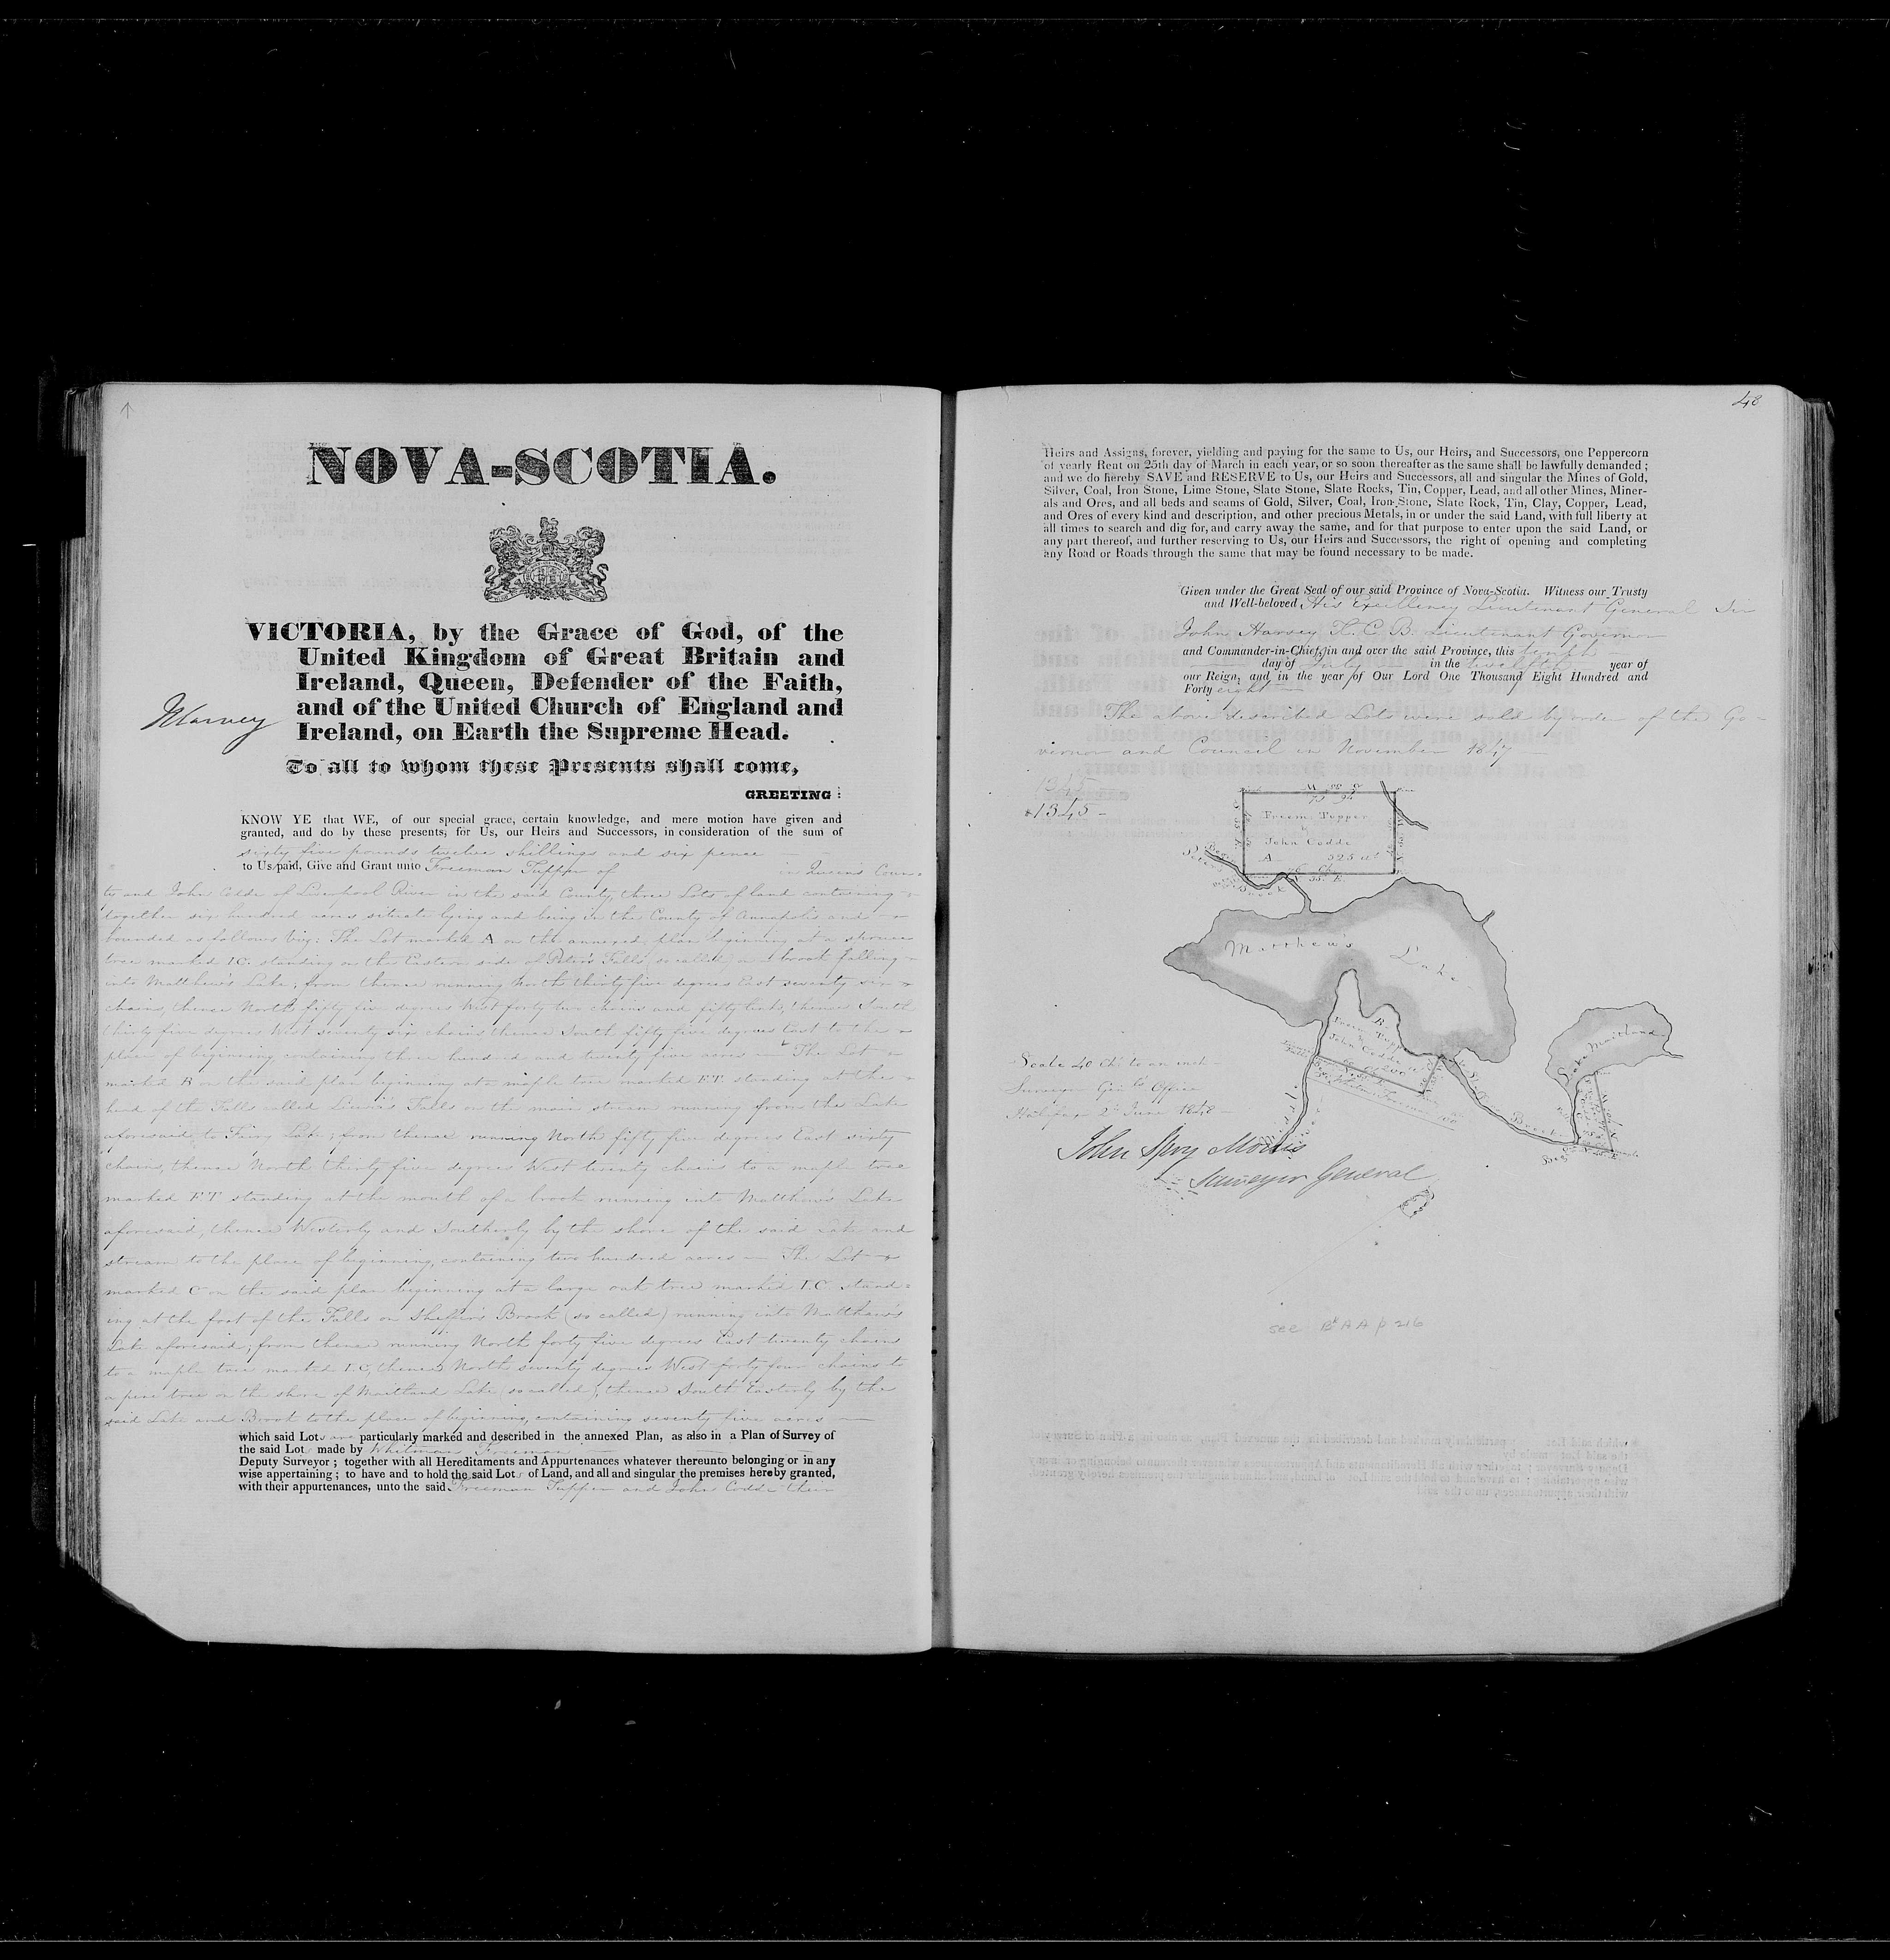 NOVA-SCOTIA.
VICTORIA, by the Grace of God, of the
United Kingdom of Great Britain and
Ireland, Queen, Defender of the Faith,
and of the United Church of England and
Ireland, on Earth the Supreme Head.
JHarvey
To all to whom these Presents shall come,
GREETING:
KNOW YE that WE, of our special grace, certain knowledge, and mere motion have given and
granted, and do by these presents, for Us, our Heirs and Successors, in consideration of the sum of
sixty five pounds twelve shillings and six pence
to Us paid, Give and Grant unto Freeman Tupper of in Queen's Coun-
ty and John Codde of Liverpool River in the said County, three Lots of land containing
together six hundred acres situate lying and being in the County of Annapolis and
bounded as follows viz: The Lot marked A on the annexed plan beginning at a
tree marked I.C. standing on the Eastern side of Peter's Falls (so called) on a brook falling
into Matthew's Lake; from thence running North thirty five degrees East seventy six
chains, thence North fifty five degrees West forty two chains and fifty links, thence South
thirty five degrees West seventy six chains thence South fifty five degrees East to the
place of beginning containing three hundred and twenty five acres — The Lot
marked B on the said plan beginning at a maple tree marked F.T. standing at the
head of the Falls called Lewis's Falls on the main stream running from the Lake
aforesaid to Fairy Lake; from thence running North fifty five degrees East sixty
chains, thence North thirty five degrees West twenty chains to a maple tree
marked F.T. standing at the mouth of a brook running into Matthew's Lake
aforesaid, thence Westerly and Southerly by the shore of the said Lake and
stream to the place of beginning, containing two hundred acres — The Lot
marked C on the said plan beginning at a large oak tree marked I.C. stand=
ing at the foot of the Falls on Brook (so called) running into Matthew's
Lake aforesaid; from thence running North forty five degrees East twenty chains
to a maple tree marked I.C, thence North seventy degrees West forty four chains to
a pine tree on the shore of Maitland Lake (so called), thence South Easterly by the
said Lake and Brook to the place of beginning, containing seventy five acres —
which said Lots are particularly marked and described in the annexed Plan, as also in a Plan of Survey of
the said Lots made by Whitman Freeman
Deputy Surveyor ; together with all Hereditaments and Appurtenances whatever thereunto belonging or in any
wise appertaining ; to have and to hold the said Lots of Land, and all and singular the premises hereby granted,
with their appurtenances, unto the said Freeman Tupper and John Codde their
48
Heirs and Assigns, forever, yielding and paying for the same to Us, our Heirs, and Successors, one Peppercorn
of yearly Rent on 25th day of March in each year, or so soon thereafter as the same shall be lawfully demanded ;
and we do hereby SAVE and RESERVE to Us, our Heirs and Successors, all and singular the Mines of Gold,
Silver, Coal, Iron Stone, Lime Stone, Slate Stone, Slate Rocks, Tin, Copper, Lead, and all other Mines, Miner-
als and Ores, and all beds and seams of Gold, Silver, Coal, Iron-Stone, Slate Rock, Tin, Clay, Copper, Lead,
and Ores of every kind and description, and other precious Metals, in or under the said Land, with full liberty at
all times to search and dig for, and carry away the same, and for that purpose to enter upon the said Land, or
any part thereof, and further reserving to Us, our Heirs and Successors, the right of opening and completing
any Road or Roads through the same that may be found necessary to be made.
Given under the Great Seal of our said Province of Nova-Scotia. Witness our Trusty
and Well-beloved His Excellency Lieutenant General Sir
John Harvey K. C. B. Lieutenant Governor
and Commander-in-Chief, in and over the said Province, this tenth
day of July in the twelfth year of
our Reign, and in the year of Our Lord One Thousand Eight Hundred and
Forty eight
The above described Lots were sold by order of the Go-
vernor and Council in November 1847
1345
1345 -
Freem. Tupper
&
John Codde
A 325 acs
76 Chs
N 35 E.
Matthew's Lake
B
Freem. Tupper
&
John Codde
200
Lake Maitland
Brook
Scale 40 Chs to an inch
Surveyor Genl's Office
Halifax 2d June 1848
John Spry Morris
Surveyor General
see Bk AA p 216